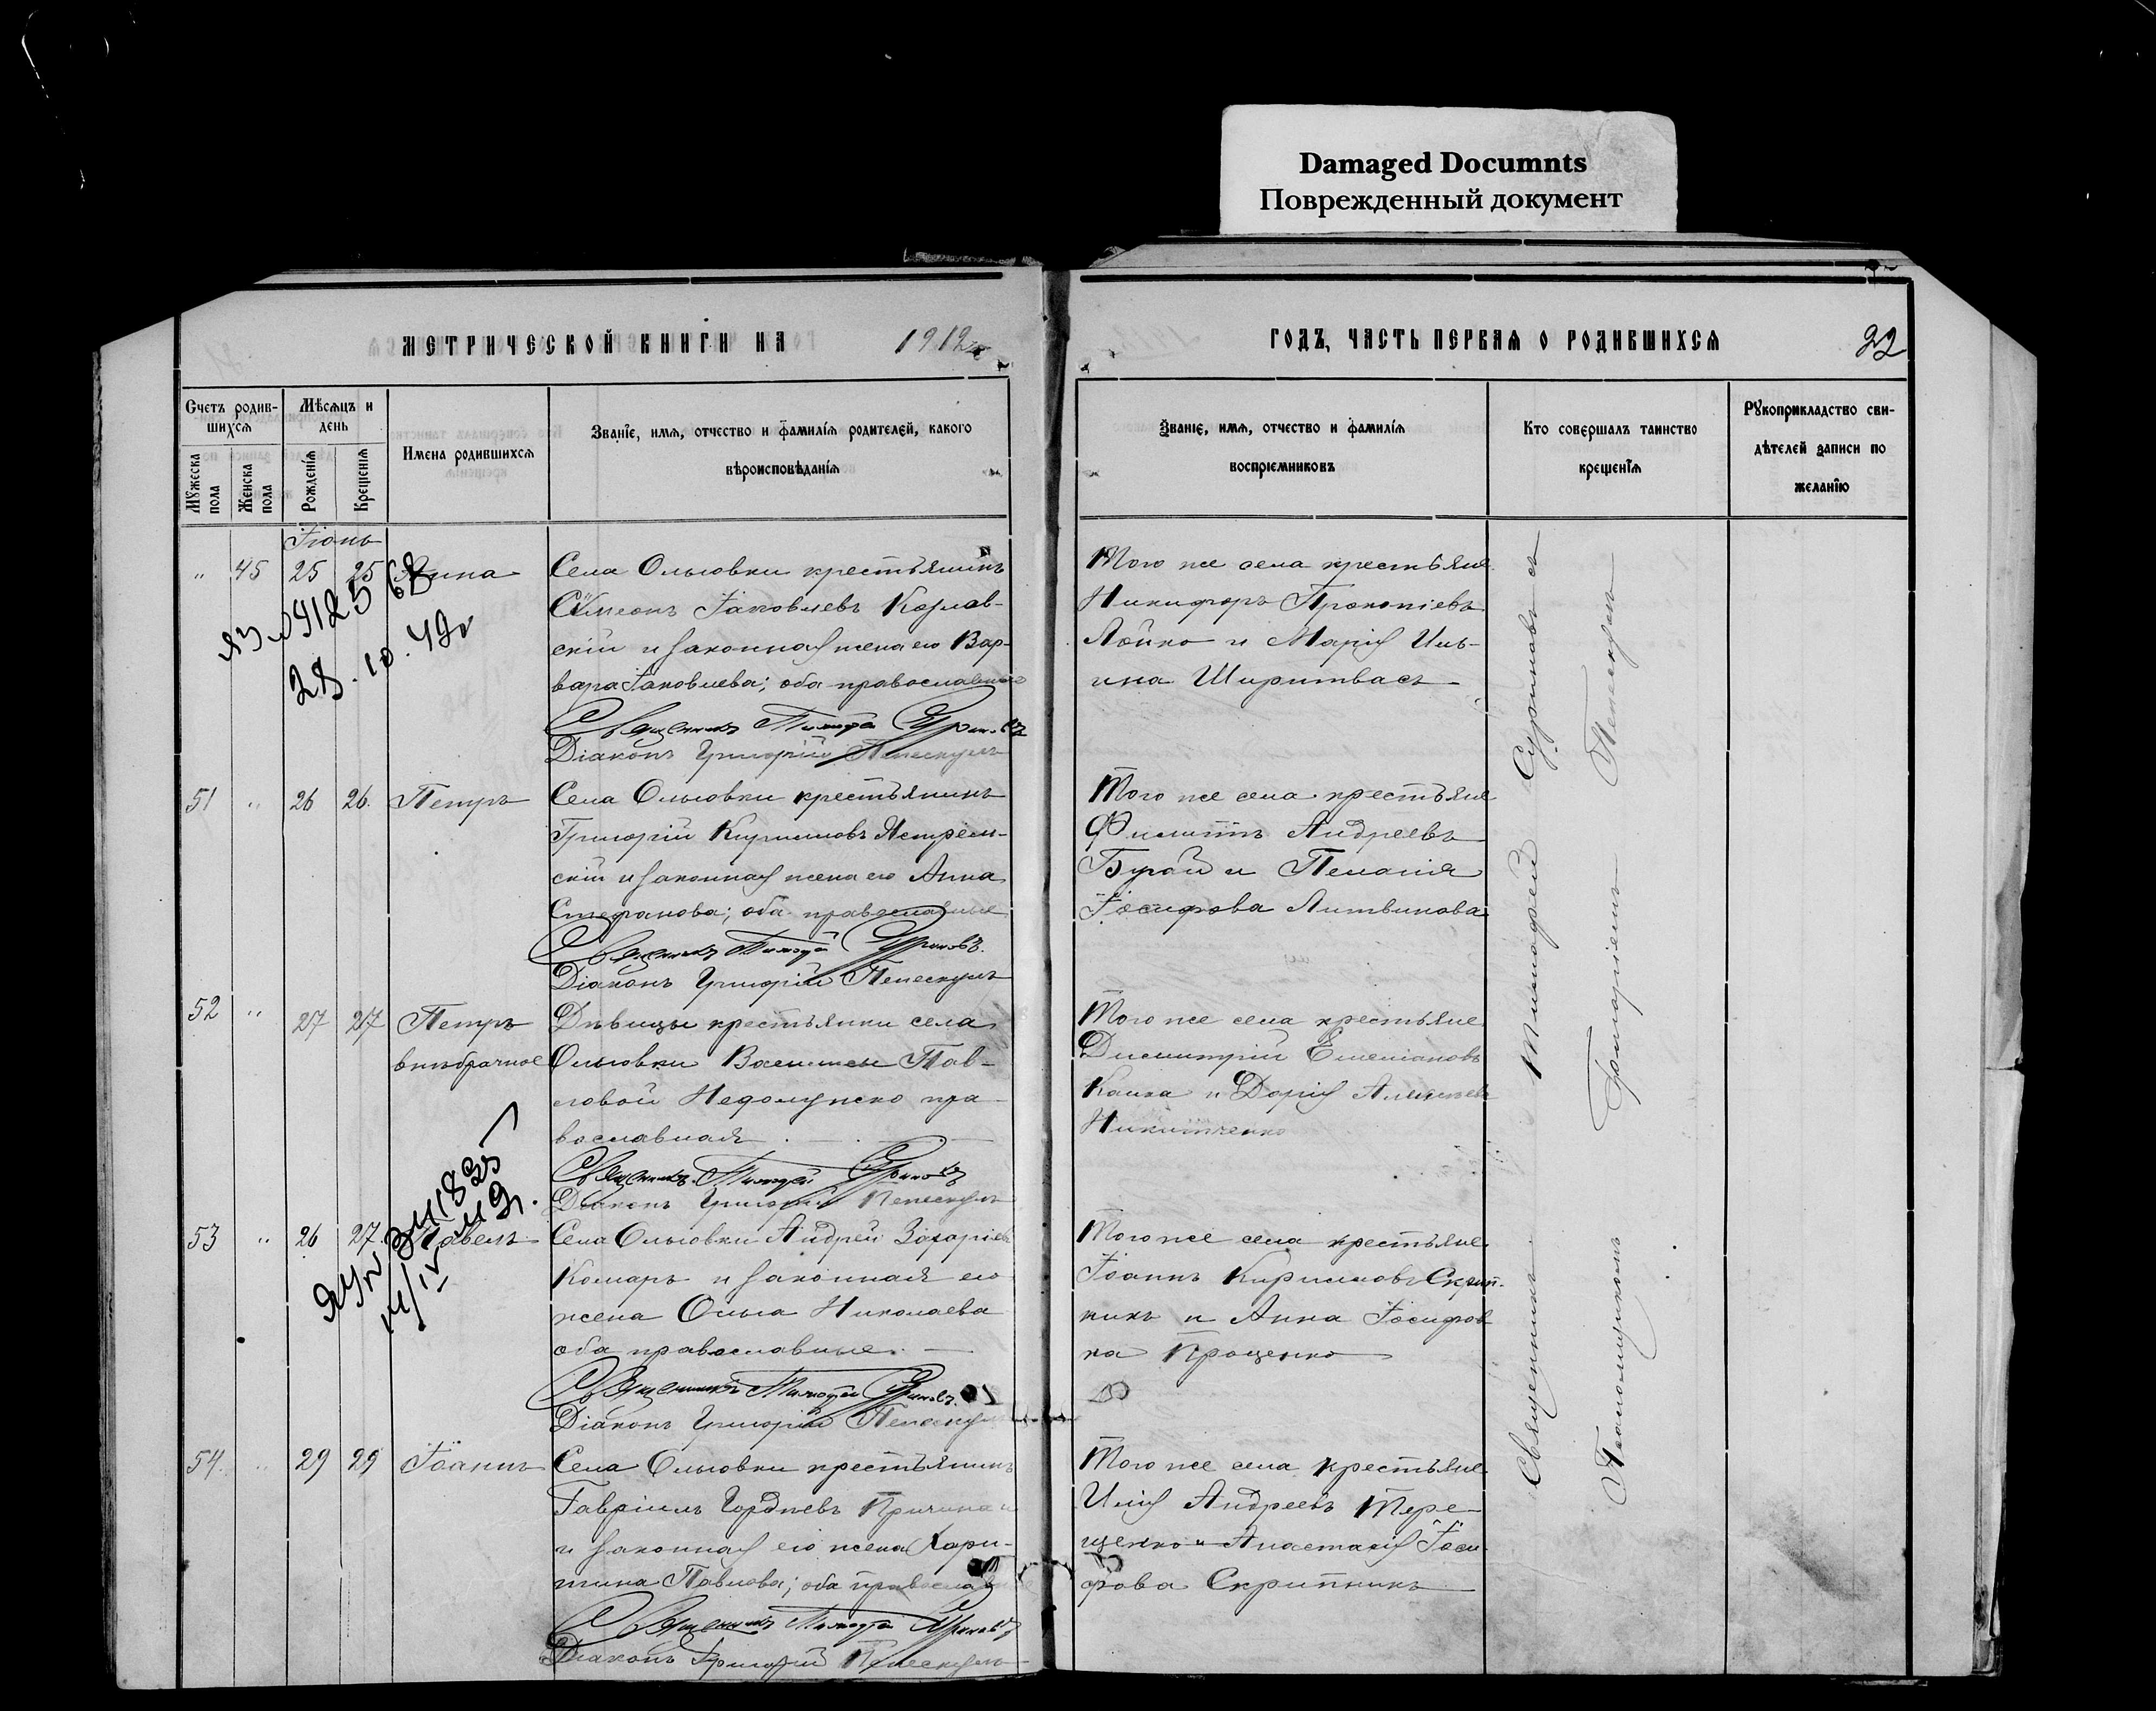 Damaged Documnts
Поврежденный документ
МЕТРИЧЕСКОЙ КНИГИ НА 1912
ГОДЪ, ЧАСТЬ ПЕРВАЯ О РОДИВШИХСЯ 22
Счетъ родив-
шихся
Мужеска пола
Женска пола
Мѣсяцъ и
день
Рожденія
Крещенія
Имена родившихся
Званіе, имя, отчество и фамилія родителей, какого
вѣроисповѣданія
Званіе, имя, отчество и фамилія
воспріемниковъ
Кто совершалъ таинство
крещенія
Рукоприкладство сви-
дѣтелей записи по
желанію
Іюнь
" 45 25 25 Анна
28.10.49г
Села Ольговки крестьянинъ
Сѵмеонъ Іаковлевъ Козлов-
скій и законная жена его Вар-
вара Іаковлева; оба православные
Священникъ Тимоѳей Суриновъ
Діаконъ Григорій Пепескулъ
Того же села крестьяне
Никифоръ Прокопіевъ
Лойко и Марія Иль-
ина
51 " 26 26. Петръ
Села Ольговки крестьянинъ
Григорій Кирилловъ Ястрем-
скій и законная жена его Анна
Стефанова; оба православные
Священникъ Тимоѳей Суриновъ.
Діаконъ Григорій Пепескулъ
Того же села крестьяне
Филиппъ Андреевъ
Бугай и Пелагія
Іосифова Литвинова
52 " 27 27 Петръ
внѣбрачное
Дѣвицы крестьянки села
Ольговки Пав-
ловой пра-
вославная
Священникъ Тимоѳей Суриновъ
Діаконъ Григорій Пепескулъ
Того же села крестьяне
Димитрій Емеліановъ
и Дарія
Никитченко
53 " 26 27. Павелъ
14/IV 49г.
Села Ольговки Андрей Захаріевъ
Комаръ и законная его
жена Ольга Николаева
оба православные.
Священникъ Тимоѳей Суриновъ.
Діаконъ Григорій Пепескулъ
Того же села крестьяне
Іоаннъ Кирилловъ Скрип-
никъ и Анна Іосифов
на Проценко
54. " 29 29 Іоаннъ
Села Ольговки крестьянинъ
Гавріилъ Гордѣевъ
и законная его жена Хари-
тина Павлова; оба православные
Священникъ Тимоѳей Суриновъ
Діаконъ Григорій Пепескулъ
Того же села крестьяне
Илія Андреевъ Тере-
щенко и Анастасія Іоси-
фова Скрипникъ
Священникъ Тимоѳей Суриновъ съ
Псаломщикомъ Григоріемъ Пепескулъ